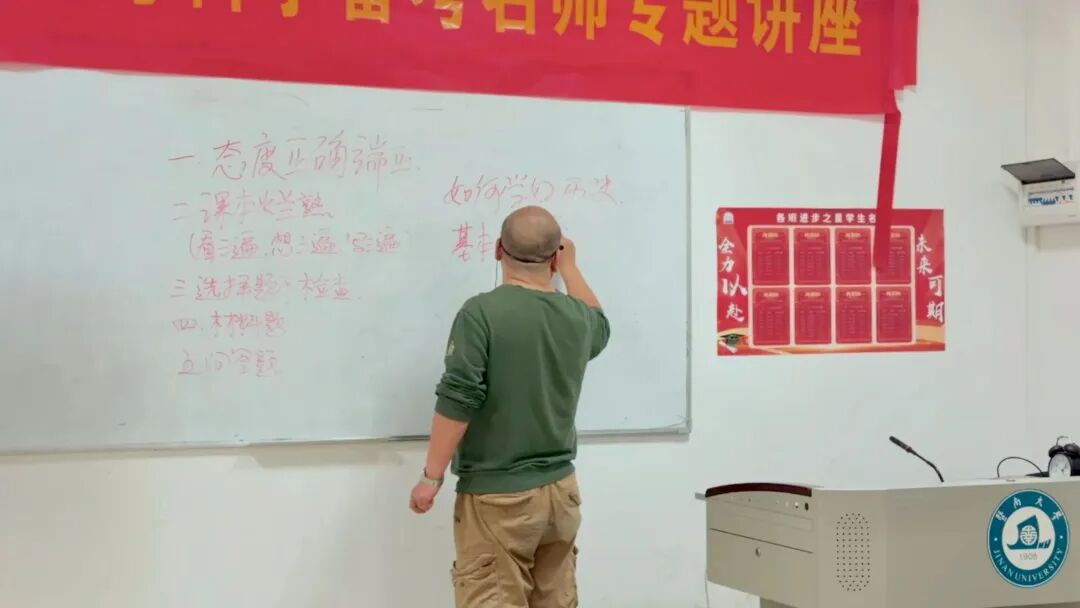 科学备考名师专题讲座
一.态度正确端正.
二 课本烂熟.
(看三遍 想三遍 写三遍)
三 选择题 检查.
四.材料题
五 问答题
如何学习历史.
基本
各班进步之星学生名
全力以赴
未来可期
暨南大学
JINAN UNIVERSITY
1906